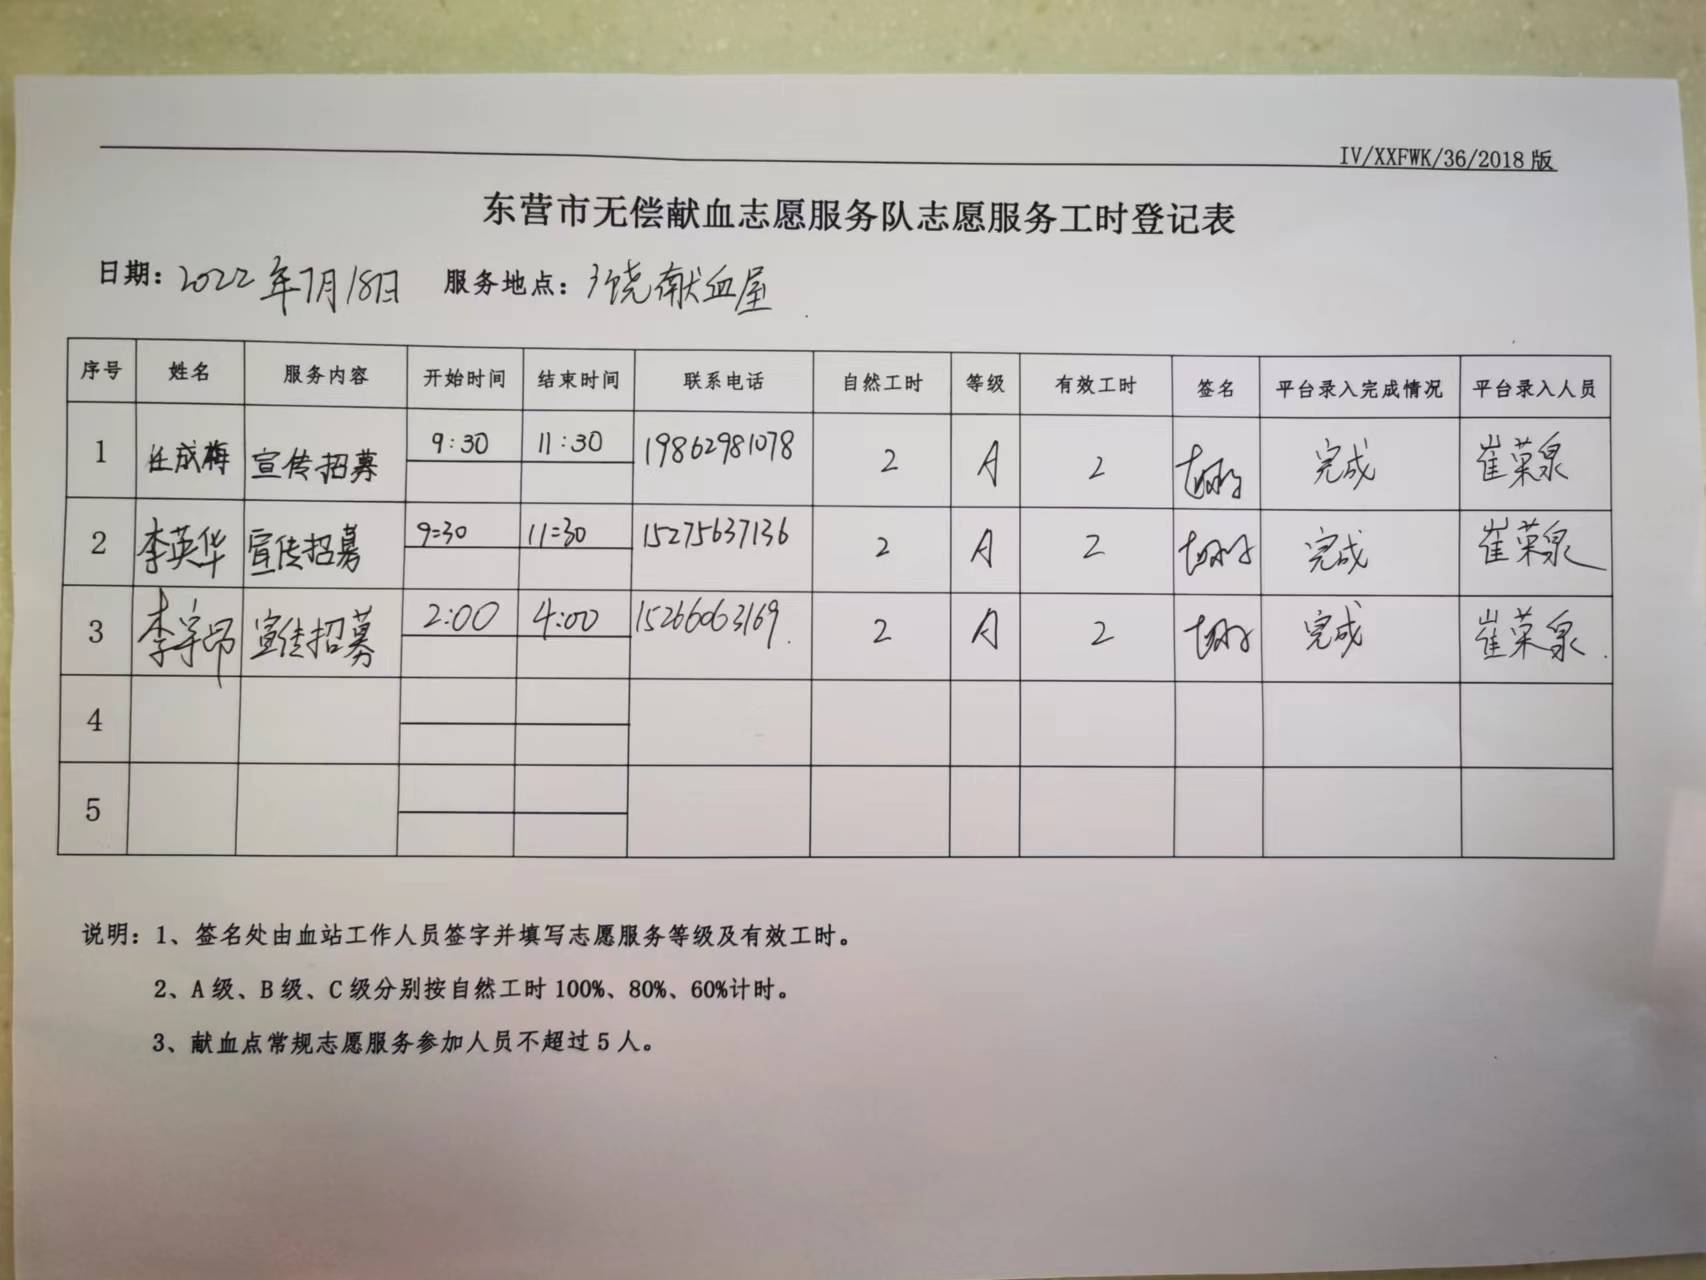 IV/XXFWK/36/2018 版
东营市无偿献血志愿服务队志愿服务工时登记表
日期：2022年7月18日 服务地点：广饶献血屋
序号 姓名 服务内容 开始时间 结束时间 联系电话 自然工时 等级 有效工时 签名 平台录入完成情况 平台录入人员
1 任成梅 宣传招募 9:30 11:30 19862981078 2 A 2 完成 崔荣泉
2 李英华 宣传招募 9:30 11:30 15275637136 2 A 2 完成 崔荣泉
3 李宇昂 宣传招募 2:00 4:00 15266063169 2 A 2 完成 崔荣泉
4
5
说明：1、签名处由血站工作人员签字并填写志愿服务等级及有效工时。
2、A级、B级、C级分别按自然工时100%、80%、60%计时。
3、献血点常规志愿服务参加人员不超过5人。